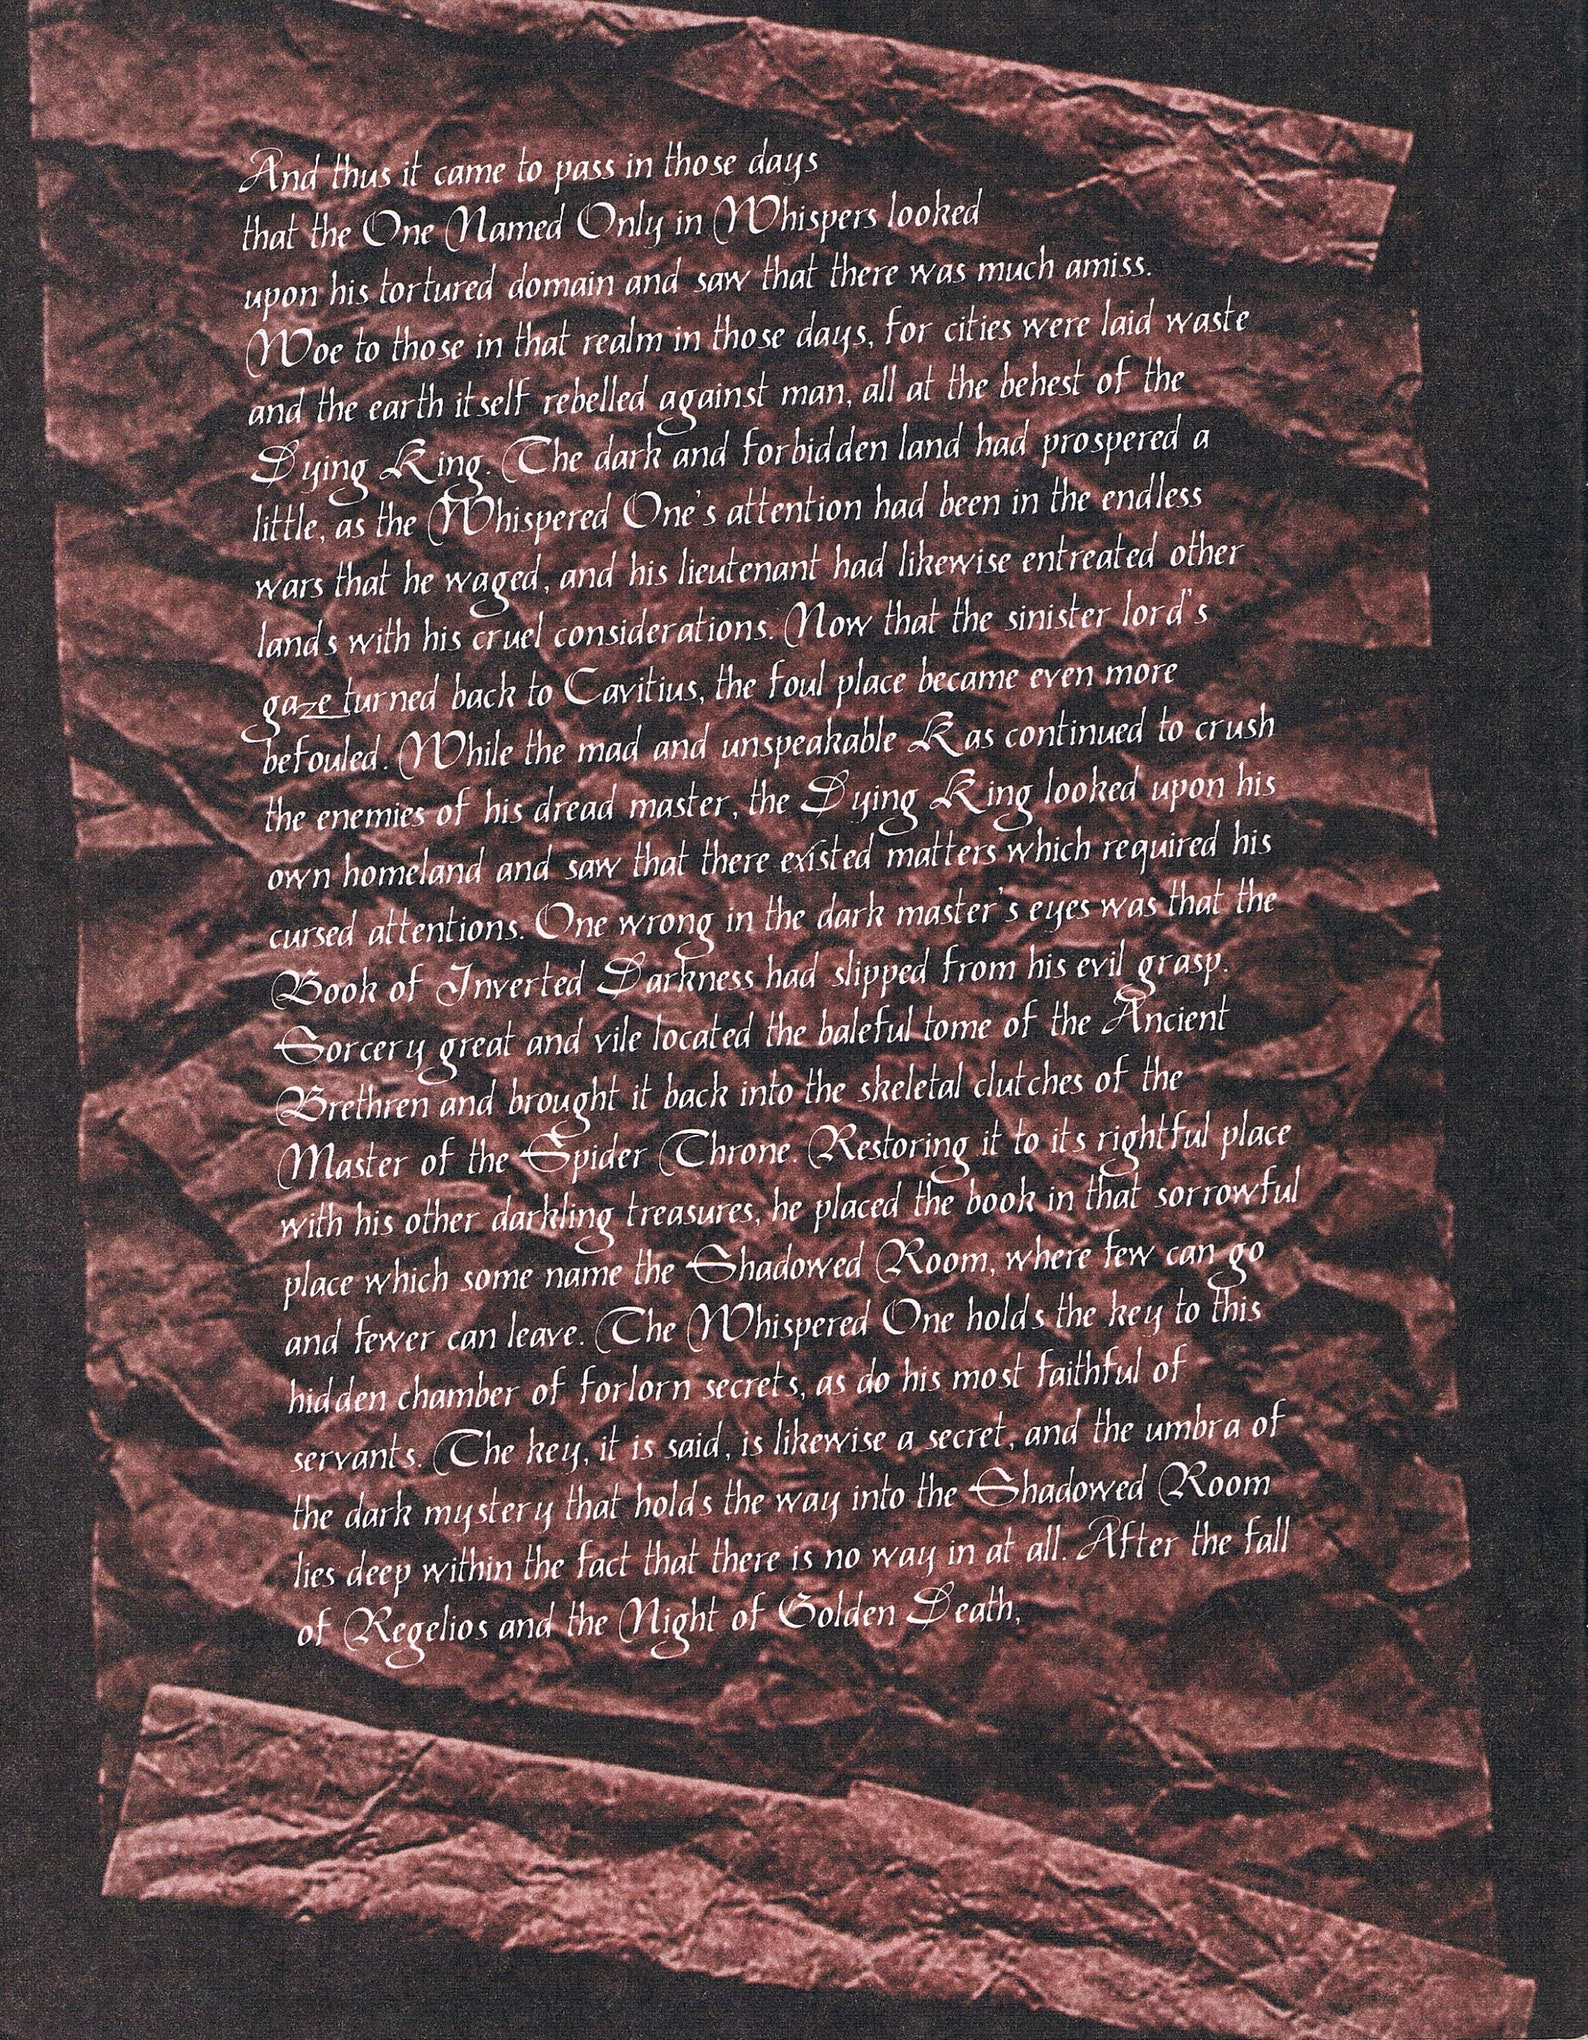 And thus it came to pass in those days
that the One Named Only in Whispers looked
upon his tortured domain and saw that there was much amiss.
Woe to those in that realm in those days, for cities were laid waste
and the earth itself rebelled against man, all at the behest of the
Dying King. The dark and forbidden land had prospered a
little, as the Whispered One's attention had been in the endless
wars that he waged, and his lieutenant had likewise entreated other
lands with his cruel considerations. Now that the sinister lord's
gaze turned back to Cavitius, the foul place became even more
befouled. While the mad and unspeakable Kas continued to crush
the enemies of his dread master, the Dying King looked upon his
own homeland and saw that there existed matters which required his
cursed attentions. One wrong in the dark master's eyes was that the
Book of Inverted Darkness had slipped from his evil grasp.
Sorcery great and vile located the baleful tome of the Ancient
Brethren and brought it back into the skeletal clutches of the
Master of the Spider Throne. Restoring it to its rightful place
with his other darkling treasures, he placed the book in that sorrowful
place which some name the Shadowed Room, where few can go
and fewer can leave. The Whispered One holds the key to this
hidden chamber of forlorn secrets, as do his most faithful of
servants. The key, it is said, is likewise a secret, and the umbra of
the dark mystery that holds the way into the Shadowed Room
lies deep within the fact that there is no way in at all. After the fall
of Regelios and the Night of Golden Death,